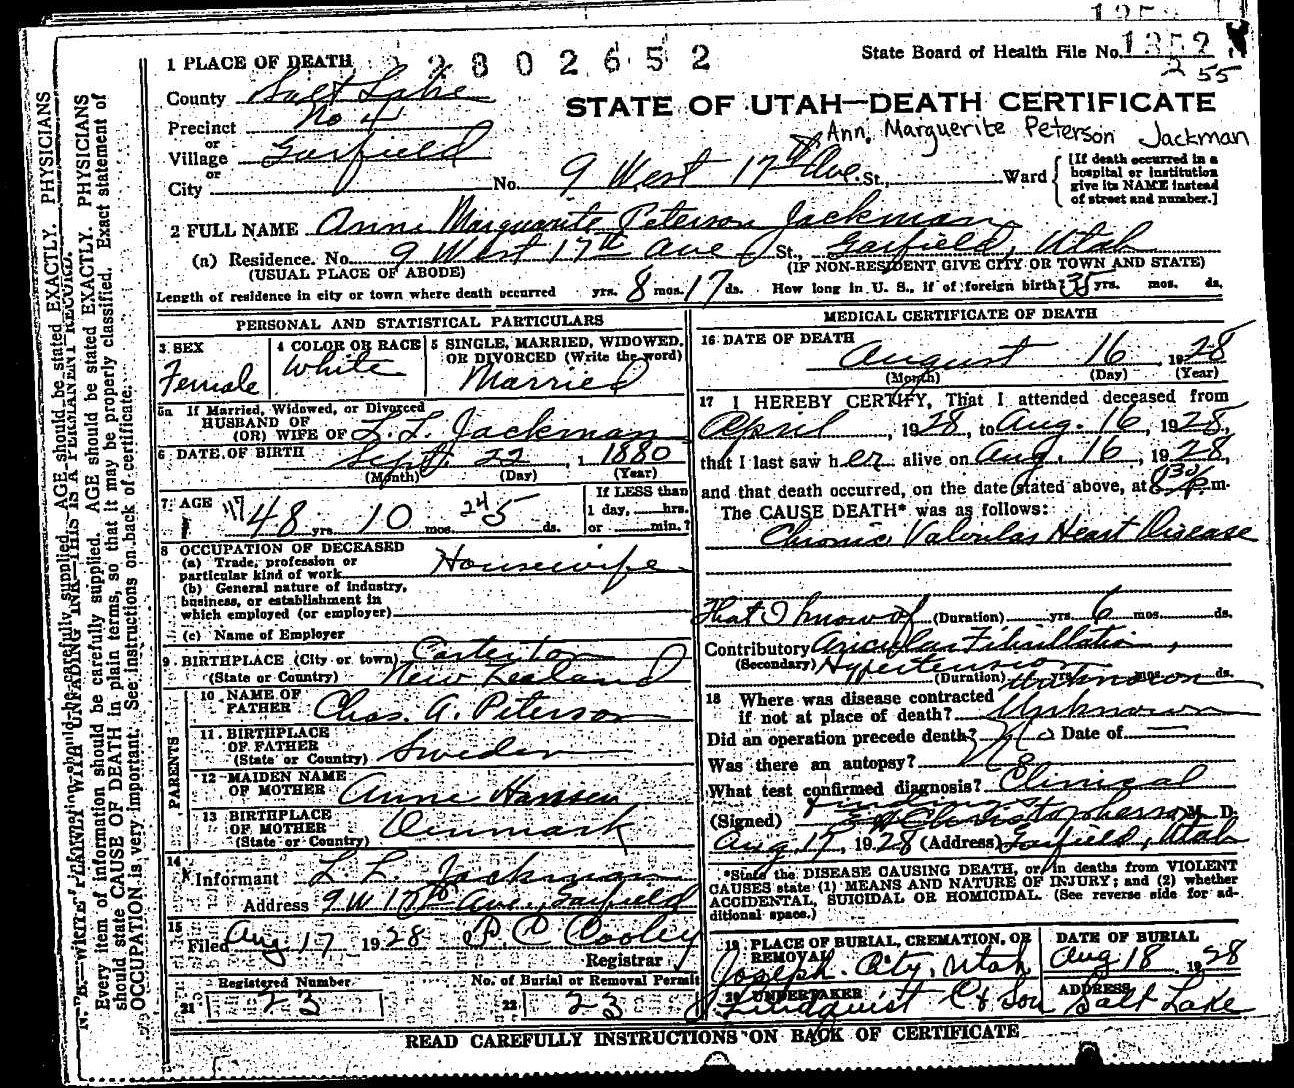 1352
State Board of Health File No. 1352
2 55
2802652
1 PLACE OF DEATH
County Salt Lake
STATE OF UTAH—DEATH CERTIFICATE
Precinct No 4
Ann. Marguerite Peterson Jackman
or
Village Garfield
or
City No. 9 West 17th Ave. St., Ward
[If death occurred in a hospital or institution give its NAME instead of street and number.]
2 FULL NAME Anne Marguarite Peterson Jackman
(a) Residence. No. 9 West 17th Ave St., Garfield, Utah
(USUAL PLACE OF ABODE) (IF NON-RESIDENT GIVE CITY OR TOWN AND STATE)
Length of residence in city or town where death occurred yrs. 8 mos. 17 ds. How long in U. S., if of foreign birth? 35 yrs. mos. ds.
PERSONAL AND STATISTICAL PARTICULARS
3 SEX
Female
4 COLOR OR RACE
White
5 SINGLE, MARRIED, WIDOWED, OR DIVORCED (Write the word)
Married
5a If Married, Widowed, or Divorced
HUSBAND OF
(OR) WIFE OF L. L. Jackman
6 DATE OF BIRTH Sept. 22, 1880
(Month) (Day) (Year)
7 AGE 48 yrs. 10 mos. 24 ds.
If LESS than
1 day, hrs.
or min.?
8 OCCUPATION OF DECEASED
(a) Trade, profession or
particular kind of work Housewife
(b) General nature of industry,
business, or establishment in
which employed (or employer)
(c) Name of Employer
9 BIRTHPLACE (City or town) Carterton
(State or Country) New Zealand
PARENTS
10 NAME OF
FATHER Chas. A. Peterson
11 BIRTHPLACE
OF FATHER
(State or Country) Sweden
12 MAIDEN NAME
OF MOTHER Anne Hansen
13 BIRTHPLACE
OF MOTHER
(State or Country) Denmark
14
Informant L L. Jackman
Address 9 W 17th Ave., Garfield
15
Filed Aug 17 1928 P. C Cooley
Registrar
Registered Number
21 23
No. of Burial or Removal Permit
22 23
MEDICAL CERTIFICATE OF DEATH
16 DATE OF DEATH
August 16, 1928
(Month) (Day) (Year)
17 I HEREBY CERTIFY, That I attended deceased from
April, 1928, to Aug. 16, 1928,
that I last saw her alive on Aug. 16, 1928,
and that death occurred, on the date stated above, at 8 30 p. m.
The CAUSE DEATH* was as follows:
Chronic Valvular Heart Disease
That I know of (Duration) yrs. 6 mos. ds.
Contributory Auricular Fibrillation,
(Secondary) Hypertension
(Duration) yrs. mos. ds. Unknown
18 Where was disease contracted
if not at place of death? Unknown
Did an operation precede death? No Date of —
Was there an autopsy? No
What test confirmed diagnosis? Clinical
findings
(Signed) Christopherson M. D.
Aug 17, 1928 (Address) Garfield, Utah
*State the DISEASE CAUSING DEATH, or in deaths from VIOLENT
CAUSES state (1) MEANS AND NATURE OF INJURY; and (2) whether
ACCIDENTAL, SUICIDAL OR HOMICIDAL. (See reverse side for ad-
ditional space.)
19 PLACE OF BURIAL, CREMATION, OR
REMOVAL
Joseph City, Utah
DATE OF BURIAL
Aug 18, 1928
20 UNDERTAKER
Lindquist & Son
ADDRESS
Salt Lake
READ CAREFULLY INSTRUCTIONS ON BACK OF CERTIFICATE
N. B.—WRITE PLAINLY WITH UNFADING INK—THIS IS A PERMANENT RECORD.
Every item of information should be carefully supplied. AGE should be stated EXACTLY. PHYSICIANS
should state CAUSE OF DEATH in plain terms, so that it may be properly classified. Exact statement of
OCCUPATION is very important. See instructions on back of certificate.